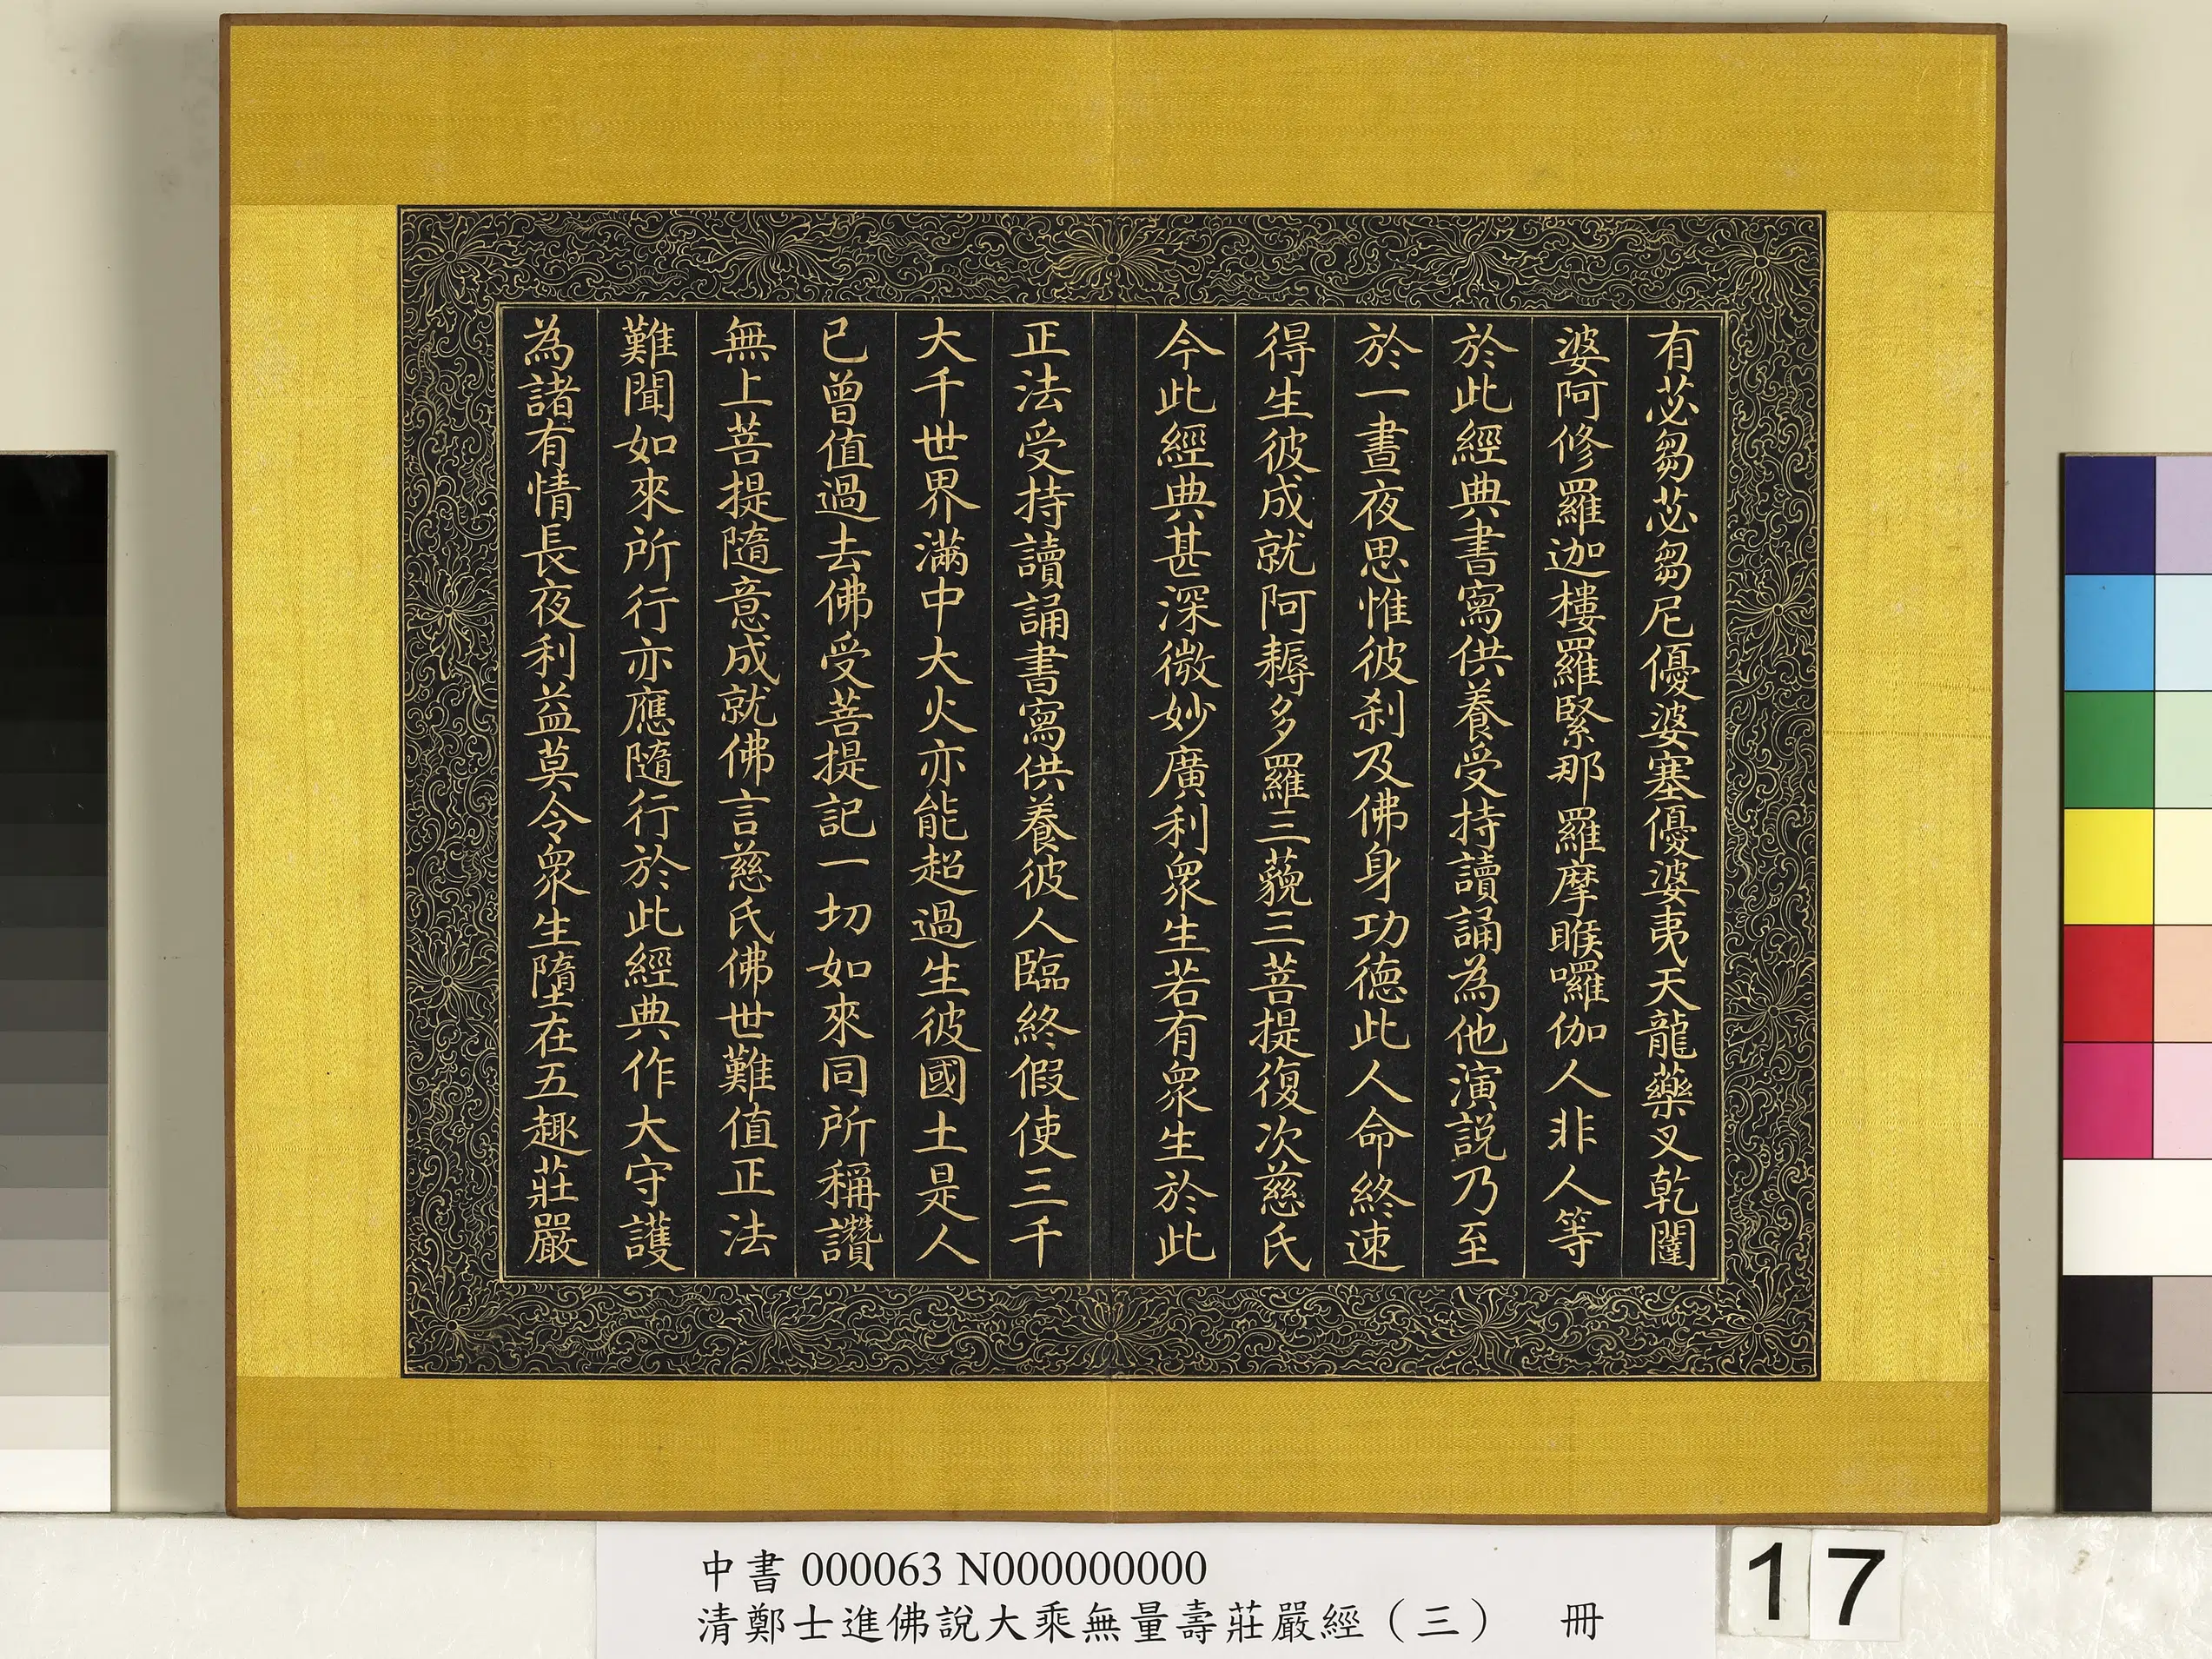 有苾芻苾芻尼優婆塞優婆夷天龍藥叉乾闥
婆阿修羅迦樓羅緊那羅摩睺囉伽人非人等
於此經典書寫供養受持讀誦為他演說乃至
於一晝夜思惟彼剎及佛身功德此人命終速
得生彼成就阿耨多羅三藐三菩提復次慈氏
今此經典甚深微妙廣利眾生若有眾生於此
正法受持讀誦書寫供養彼人臨終假使三千
大千世界滿中大火亦能超過生彼國土是人
已曾值過去佛受菩提記一切如來同所稱讚
無上菩提隨意成就佛言慈氏佛世難值正法
難聞如來所行亦應隨行於此經典作大守護
為諸有情長夜利益莫令眾生墮在五趣莊嚴
中書 000063 N000000000
清鄭士進佛說大乘無量壽莊嚴經（三） 冊
17